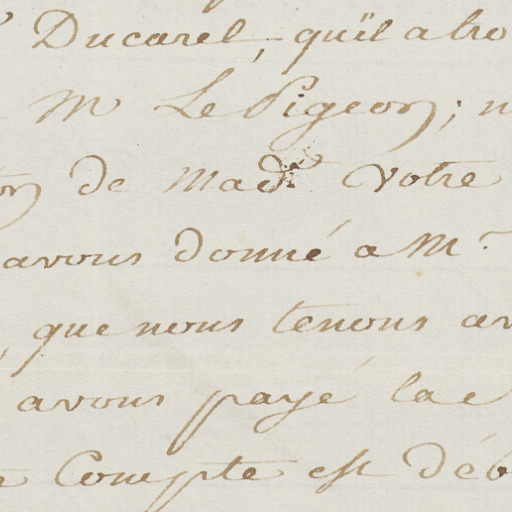 Ducarel, quïl a tro
M Le Pigeon; n
on de Made Votre
avons donné a M.
, que nous tenons av
avons payé la c
Compte est déb